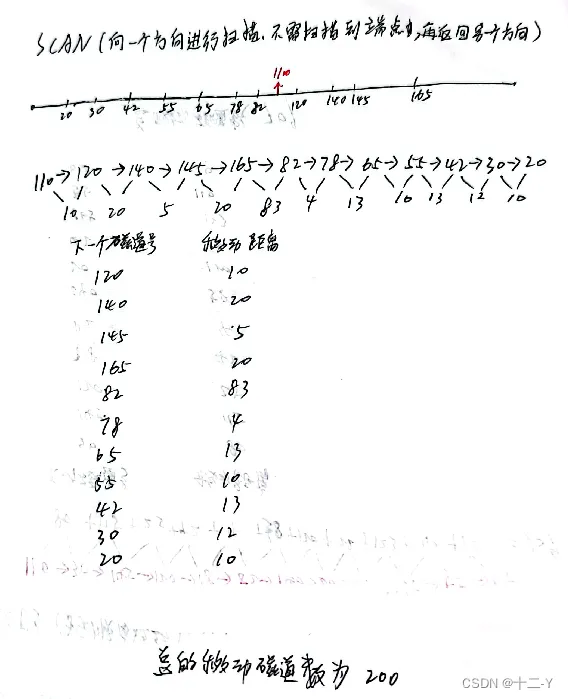 SCAN(向一个方向进行扫描,不需扫描到端点,再返回另一个方向)
110
20 30 42 55 65 78 82 120 140 145 165
110→120→140→145→165→82→78→65→55→42→30→20
10 20 5 20 83 4 13 10 13 12 10
下一个磁道号 移动距离
120 10
140 20
145 5
165 20
82 83
78 4
65 13
55 10
42 13
30 12
20 10
总的移动磁道数为 200
CSDN @十二-Y